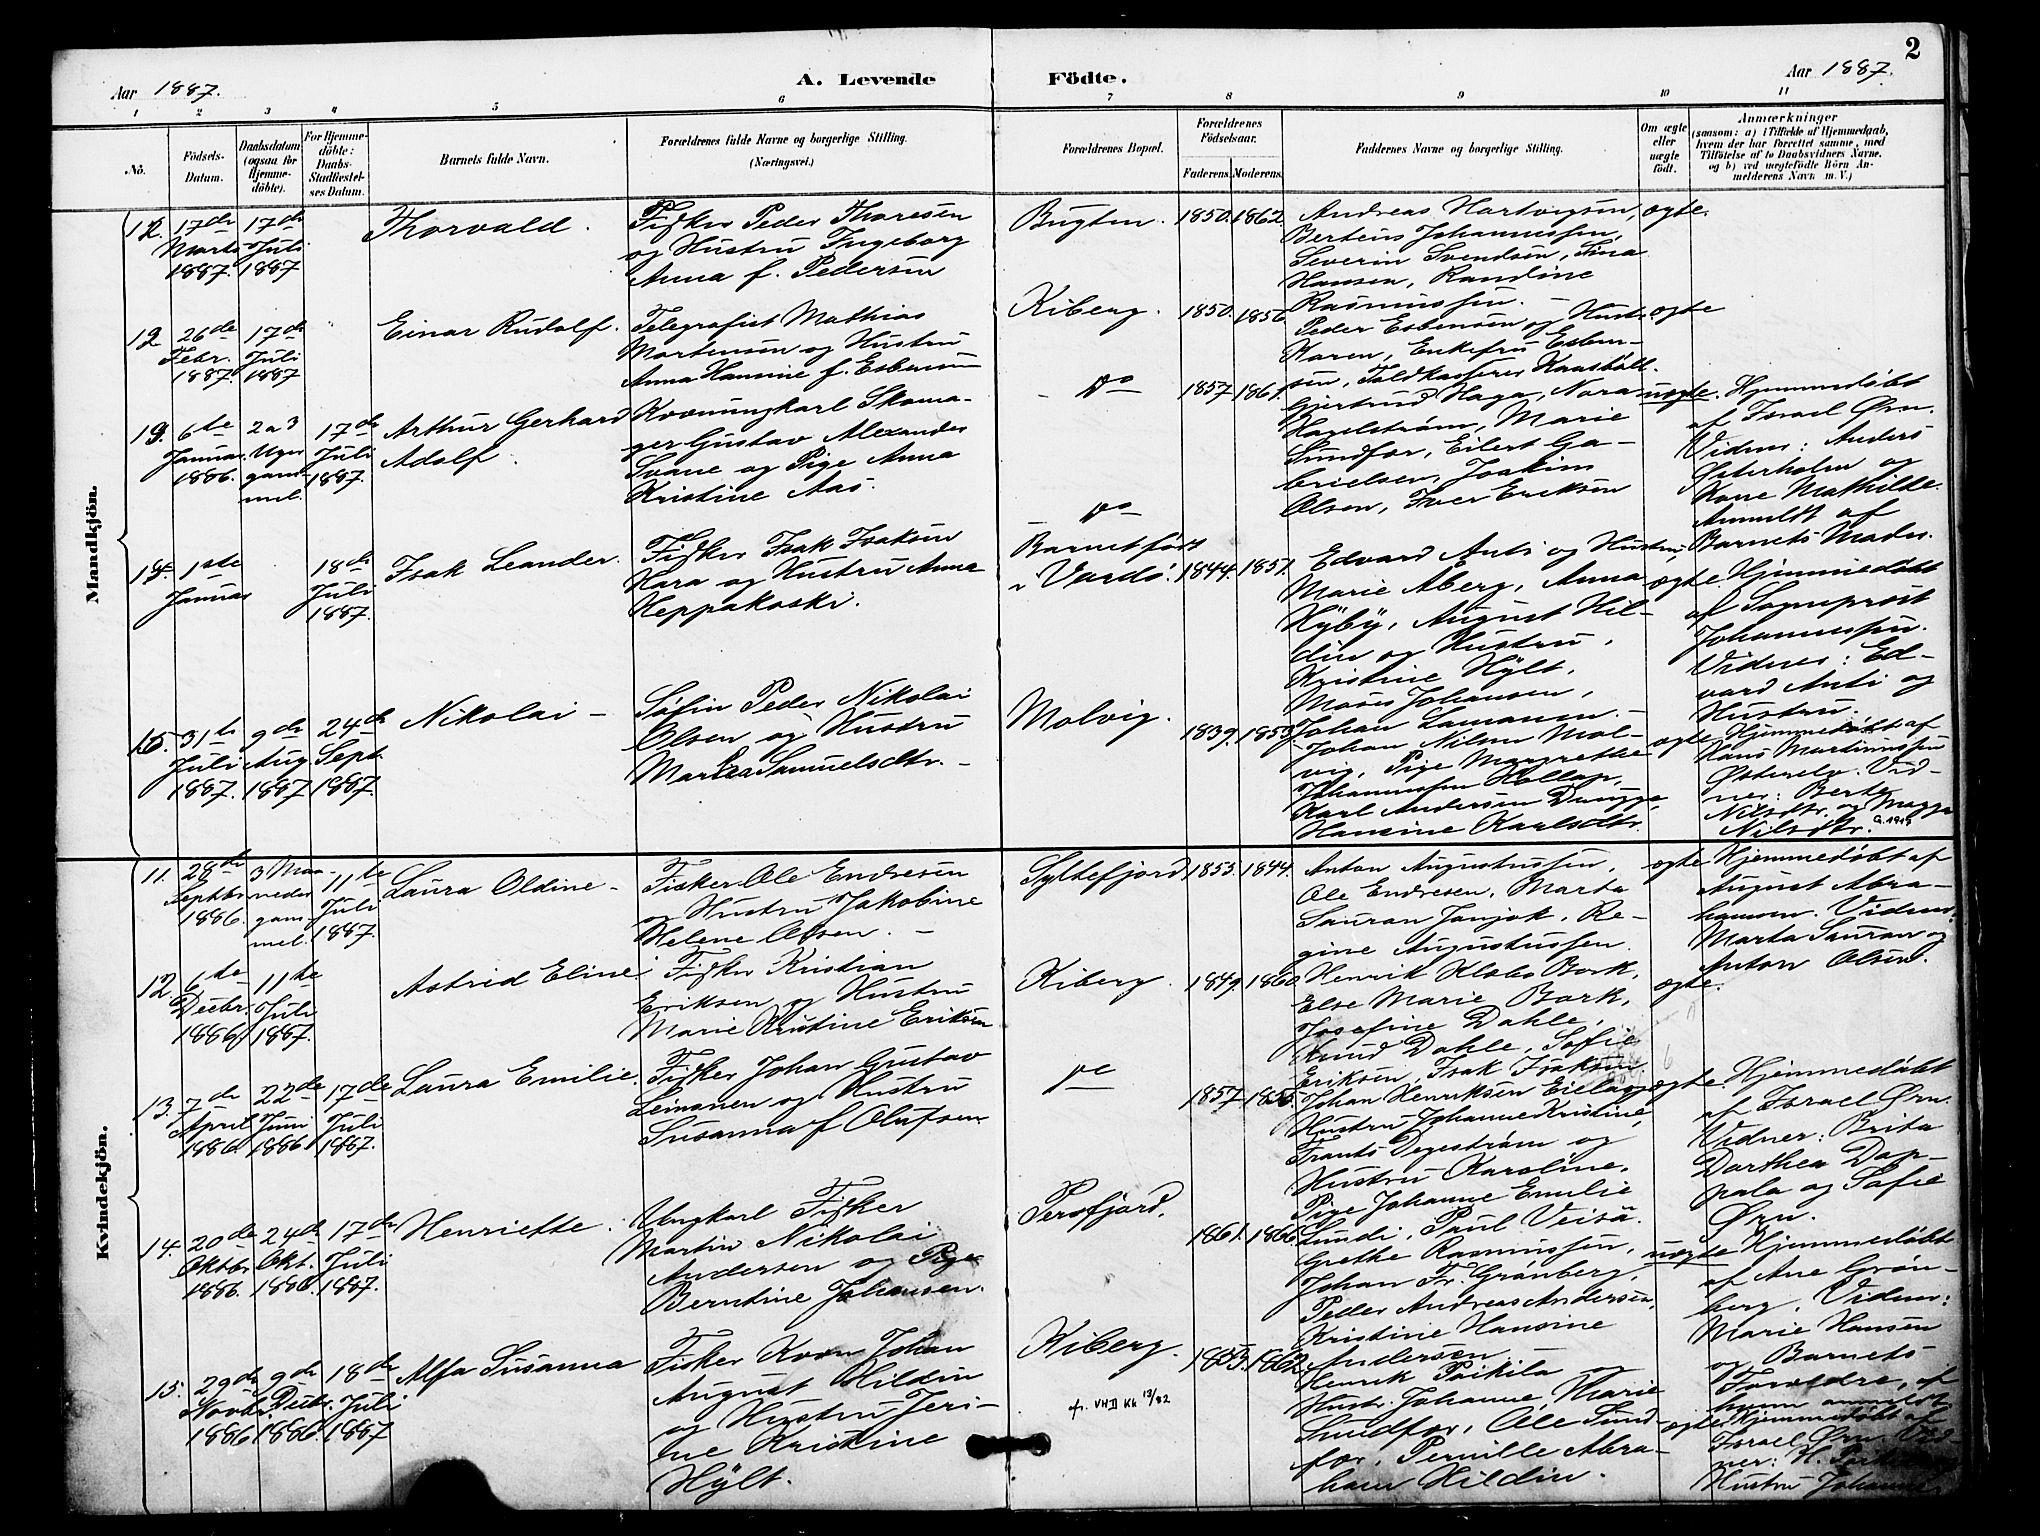 2
Aar 1887.
A. Levende Födte.
Aar 1887.
1 2 3 4 5 6 7 8 9 10 11
No.
Födsels-
Datum.
Daabsdatum
(ogsaa for
Hjemme-
döbte).
For Hjemme-
döbte:
Daabs-
Stadfæstel-
ses Datum.
Barnets fulde Navn.
Forældrenes fulde Navne og borgerlige Stilling.
(Næringsvei.)
Forældrenes Bopæl.
Forældrenes
Födselsaar.
Faderens. Moderens.
Faddernes Navne og borgerlige Stilling.
Om ægte
eller
uægte
födt.
Anmærkninger
(saasom: a) i Tilfælde af Hjemmedaab,
hvem der har forrettet samme, med
Tilföielse af to Daabsvidners Navne,
og b) ved uægtefödte Börn An-
melderens Navn m. V.)
Mandkjön.
12.
17de
Marts
1887.
17de
Juli
1887
Thorvald.
Fisker Peder Thoresen
og Hustru Ingeborg
Anna f. Pedersen
Bugten.
1850. 1862.
Andreas Hartvigsen,
Berteus Johannessen,
Severin Svendsen, Sina
Hansen, Randine
Rasmussen. –
ægte.
26de
Febr.
1887.
17de
Juli
1887
Einar Rudolf.
Telegrafist Mathias
Mortensen og Hustru
Anna Hansine f. Esbensen
Kiberg.
1850. 1856.
Peder Esbensen og Hustr.
Karen, Enkefru Esben-
sen, Toldkasserer Kaasbøll.
ægte
6te
Januar
1886.
2 a 3
Uger
gam-
mel.
17de
Juli
1887.
Arthur Gerhard
Adolf.
Kvænungkarl Skoma-
ger Gustav Alexander
Svane og Pige Anna
Kristine Aas.
– do
1857 1861.
Gjertrud Haga, Nora
Hagelstrøm, Marie
Sundfor, Eilert Ga-
brielsen, Joakim
Olsen, Iver Eriksen
uægte.
Hjemmedøbt
af Israel Ørn.
Vidner: Anders
Østerholm og
Kone Mathilde.
Anmeldt af
Barnets Moder.
1ste
Januar
18de
Juli
1887.
Isak Leander.
Fisker Isak Isaksen
Hara og Hustru Anna
Heppakoski.
do
Barnet født
i Vardø.
1844. 1851.
Edvard Anti og Hustru
Marie Aberg, Anna
Hyby, August Hil-
din og Hustru,
Kristine Hylt,
Moses Johansen,
Johan Lamanen. –
ægte.
Hjemmedøbt
af Sogneprest
Johannessen.
Vidner: Ed-
vard Anti og
Hustru.
15.
31te
Juli
1887.
9de
Aug
1887
24de
Sept.
1887.
Nikolai –
Søfin Peder Nikolai
Olsen og Hustru
Samuelsdtr. –
Molvig.
1839. 1853.
Johan Nilsen Mol-
vig, Pige Margrethe
Johannessen
Karl Andersen
Hansine Karlsdtr.
ægte
Hjemmedøbt af
Hans Martinussen
Østerelv. Vid-
ner: Berte
Nilsdtr. og Magga
Nilsdtr. G. 1919
Kvindekjön.
11.
28de
Septbr
1886.
3 Maa-
neder
gam-
mel.
11te
Juli
1887.
Laura Oldine –
Fisker Ole Endresen
og Hustru Jakobine
Helene Olsen. –
Syltefjord
1853. 1844.
Anton Augustussen,
Ole Endresen, Marta
Sauran Janjok, Re-
gine Augustussen.
ægte
Hjemmedøbt af
August Abra-
hamsen. Vidner:
Marta Sauran og
Anton Olsen.
12.
6te
Decbr.
1886.
11te
Juli
1887.
Astrid Eline
Fisker Kristian
Eriksen og Hustru
Marie Kristine Eriksen
Kiberg.
1849. 1860.
Henrik Klæbo Bork,
Else Marie Bork,
Josefine Dahle,
Knud Dahle, Sofie
Eriksen, Isak Isaksen
ægte.
13.
7de
April
1886.
22de
Juni
1886
17de
Juli
1887.
Laura Emilie.
Fisker Johan Gustav
Leimanen og Hustru
Susanna f Olufsen.
do
1857
Johan Henriksen Eiela og
Hustru Johanne Kristine,
Frants Degerstrøm og
Hustru Karoline.
Pige Johanne Emilie
Lundi, Paul Veisä.
ægte
Hjemmedøbt
af Israel Ørn.
Vidner: Brita
Dorthea Dap-
pala og Sofie
Ørn.
14.
20de
Oktbr.
1886.
24de
Okt.
1886.
17de
Juli
1887.
Henriette.
Ungkarl Fisker
Martin Nikolai
Andersen og Pige
Berntine Johansen.
Persfjord.
1861. 1866.
Grethe Rasmussen,
Johan Fr. Grønberg,
Peder Andreas Andersen,
Kristine Hansine
Andersen
uægte
Hjemmedøbt
af Ane Grøn-
berg. Vidner:
Marie Hansen
og Barnets
Forældre, af
hvem anmeldt
15.
29de
Novbr.
1886.
9de
Decbr.
1886.
18de
Juli
1887
Alfa Susanna
Fisker Kvæn Johan
August Hildin
og Hustru Jeri-
ne Kristine
Hylt.
Kiberg.
fr. VHD Kb 13/82
1862.
Henrik Poikila og
Hustr. Johanne, Marie
Sundfor, Ole Sund-
for, Pernille Abra-
ham Hildin.
ægte
Hjemmedøbt af
Israel Ørn. Vid-
ner: H.
Hustru Johanne.